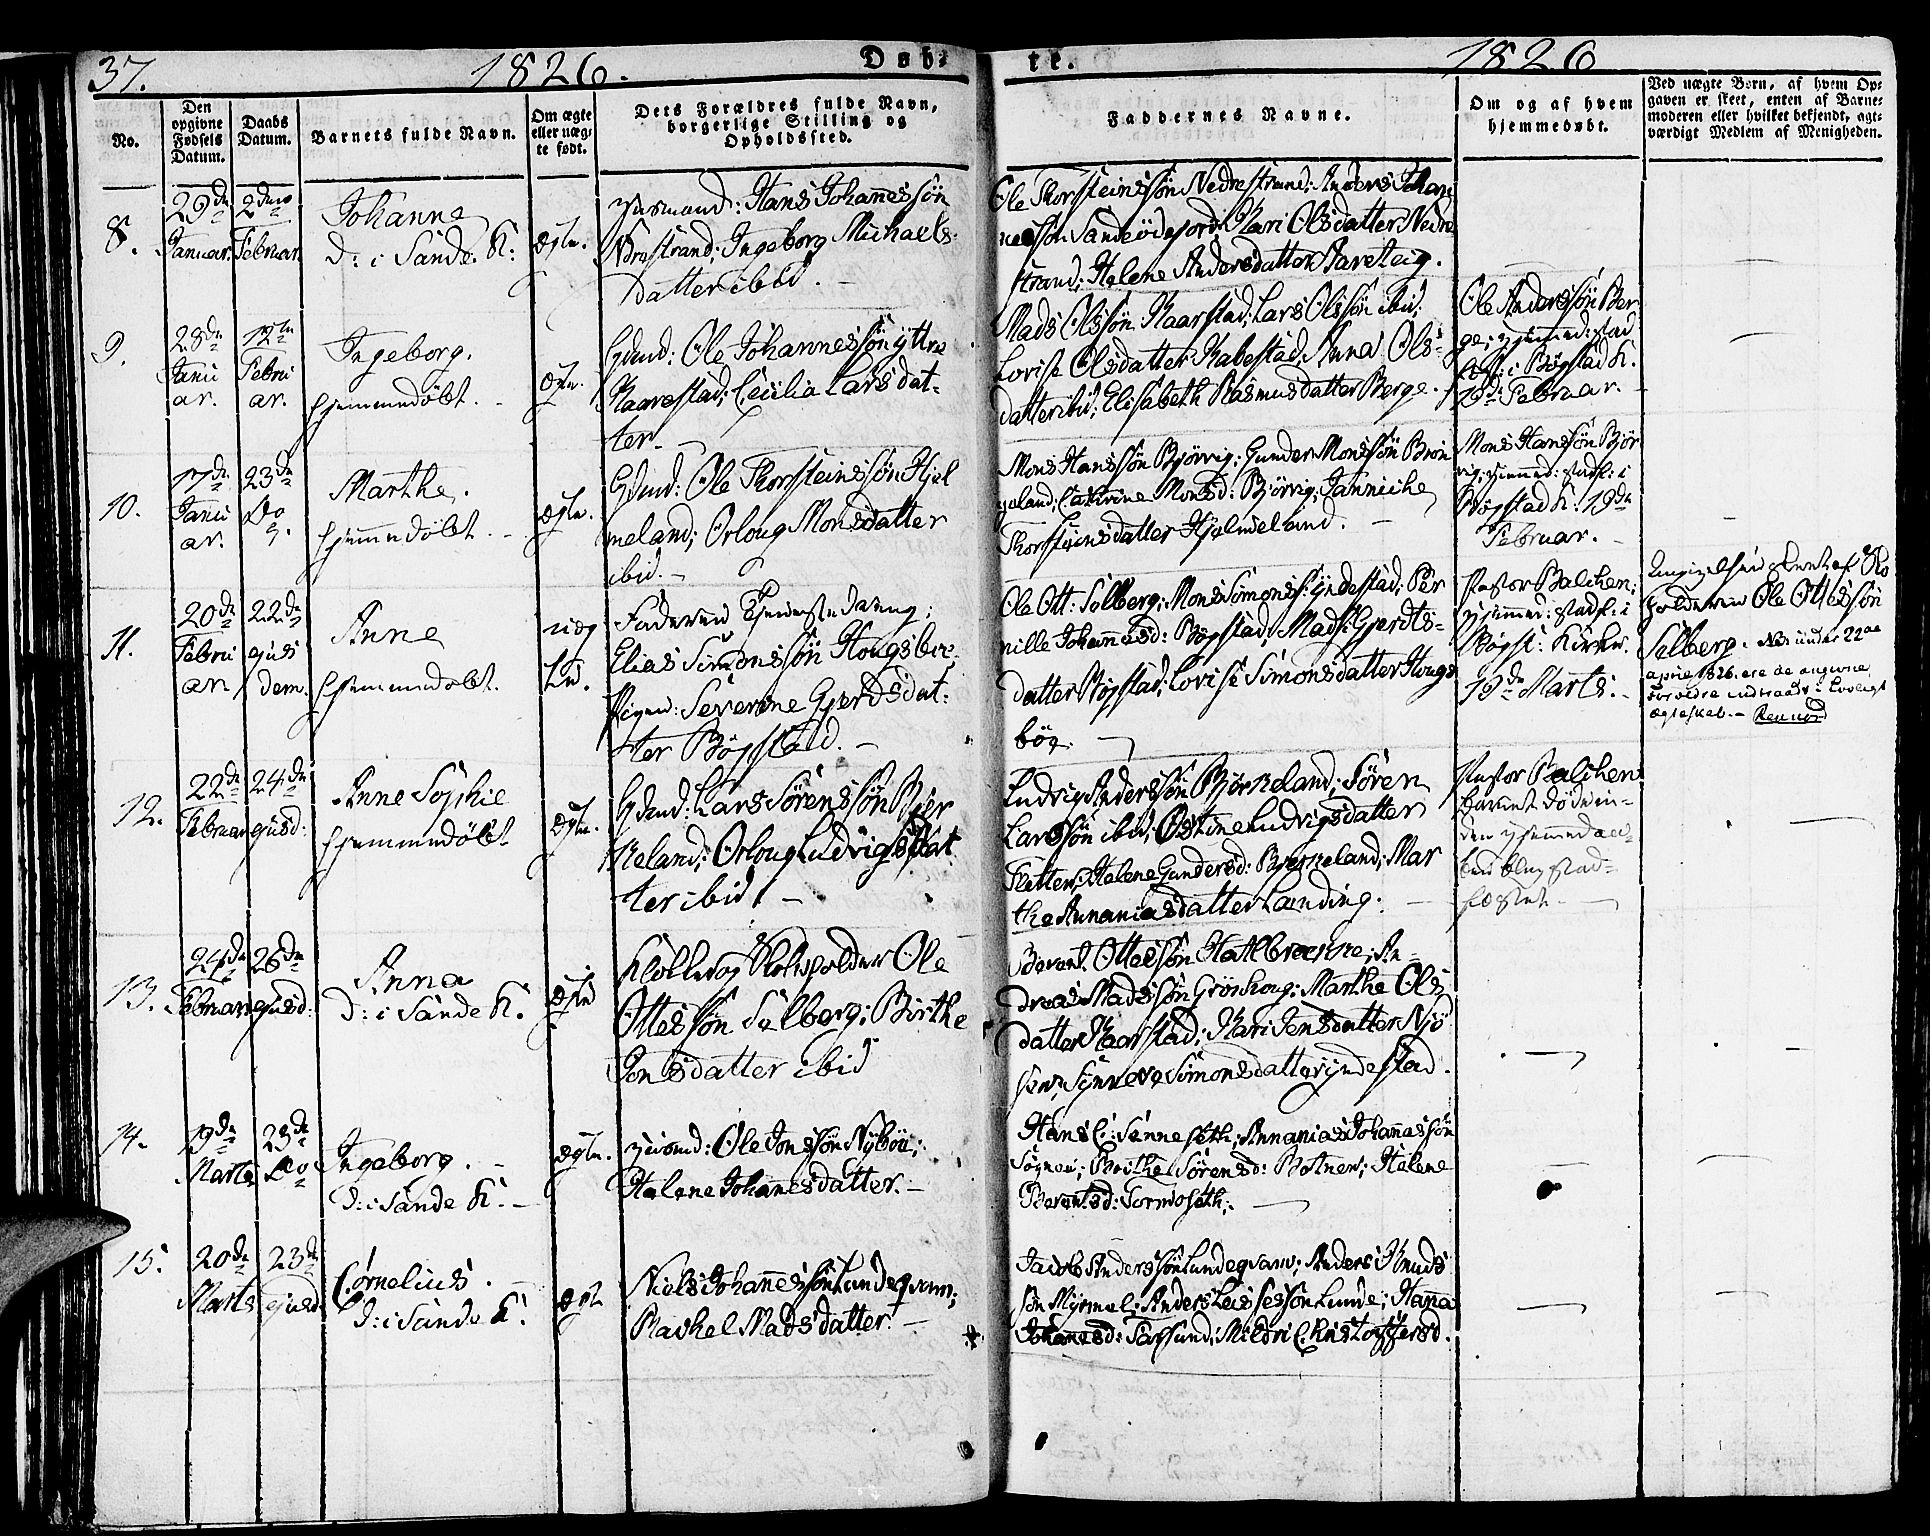 37.
1826.
Døb-
te.
1826
No.
Den opgivne Fødsels Datum.
Daabs Datum.
Barnets fulde Navn.
Om ægte eller uægte født.
Dets Forældres fulde Navn, borgerlige Stilling og Opholdssted.
Faddernes Navne.
Om og af hvem hjemmedøbt.
Ved uægte Børn, af hvem Opgaven er skeet, enten af Barnemoderen eller hvilket bekjendt, agtværdigt Medlem af Menigheden.
8.
29de
Januar.
2den
Februar
Johanne
D: i Sande K:
ægte.
Huusmand: Hans Johannessön
Nedrestrand; Ingeborg Michaels-
datter ibid. —
Ole Thorsteinssön Nedrestrand; Anders Johan
nessön Sandeödefjord; Kari Olsdatter Nedre
strand; Helene Andersdatter Aareteig.
9.
28de
Janu
ar.
12te
Febru
ar.
Ingeborg.
hjemmedöbt.
ægte.
Gdmd: Ole Johannessön yttre
Kaarestad; Cecilia Larsdat-
ter
Mads Olssön Kaarstad; Lars Olssön ibid;
Lovise Olsdatter Kabestad; Anna Ols-
datter ibid; Elisabeth Rasmusdatter Berge.
Ole Anderssön Ber
ge; hjemmed: stad
fæst: i Bögstad K.
12de Februar.
10.
17de
Janu
ar.
23de
Do
Marthe.
hjemmedöbt.
ægte.
Gdmd: Ole Thorsteinssön Hjel
meland; Orloug Monsdatter
ibid.
Mons Hanssön Björvig; Gunder Monssön Brin
geland; Cathrine Monsd: Björvig; Jannicke
Thorsteinsdatter Hjelmeland. —
Mons Hanssön Björ
vig; hjemmed: stadf: i
Bögstad K: 19de
Februar.
11.
20de
Febru
ar
22de
ejus
dem.
Anne
hjemmedöbt.
uæg
te.
Faderen Tjenestedreng:
Elias Simonssön Hougsbøe,
Pigen: Severine Gjerdsdat-
ter Bögstad. —
Ole Ott: Solberg; Mons Simonss: Yndestad; Per
nille Johannesd: Bögstad; Mads: Gjerdts-
datter Bögstad; Lovise Simonsdatter Hougs
böe.
Pastor Balchen;
hjemmed: stadf: i
Bögst: Kirke.
19de Marts. —
Angivelsen skeet af Ko
holderen Ole Ottessön
Solberg. NB under 22de
april 1826 ere de angivne
Forældre indtraadt i Lovligt
ægteskab. —
12.
22de
Februar
24de
ejusd:
Anne Sophie
hjemmedöbt
ægte.
Gdmd: Lars Sörenssön Bjer
keland; Orloug Ludvigsdat
ter ibid. —
Ludvig Anderssön Björkeland; Sören
Larssön ibid; Ostine Ludvigsdatter
Fletten; Helene Gundersd: Bjerkeland; Mar
the Annaniasdatter Lænding. —
Pastor Balchen
barnet döde in-
den hjemmedaa-
ben blev stad-
fæstet. —
13.
24de
Februar
26de
ejusd:
Anna
D: i Sande K.
ægte
Klokker og Skoleholder Ole
Ottessön Sølberg; Birthe
Jensdatter ibid
Berent Ottessön Hatlebrække; An-
dreas Madssön Gröshoug; Marthe Ols
datter Kaarstad; Kari Jensdatter Njö
sen; Synneve Simonsdatter Yndestad.
14.
19de
Marts
23de
Do
Ingeborg.
D: i Sande K. —
ægte.
Huusmd: Ole Jonssön Nybøe;
Helene Johannesdatter. —
Hans C: Sanneseth; Annanias Johannessön
Sognen; Brithe Sörensd: Botnen; Helene
Berentsd: Tormoseth;
15.
20de
Marts
23de
ejusd
Cornelius.
D: i Sande K:
ægte
Niels Johannessön Lundeqvam;
Rachel Madsdatter. —
Jacob Anderssön Lundeqvam; Anders Knuds
sön Myrmel; Anders Lassessön Lunde; Hanna
Johannesd: Tarsund; Mildri Christoffersd.